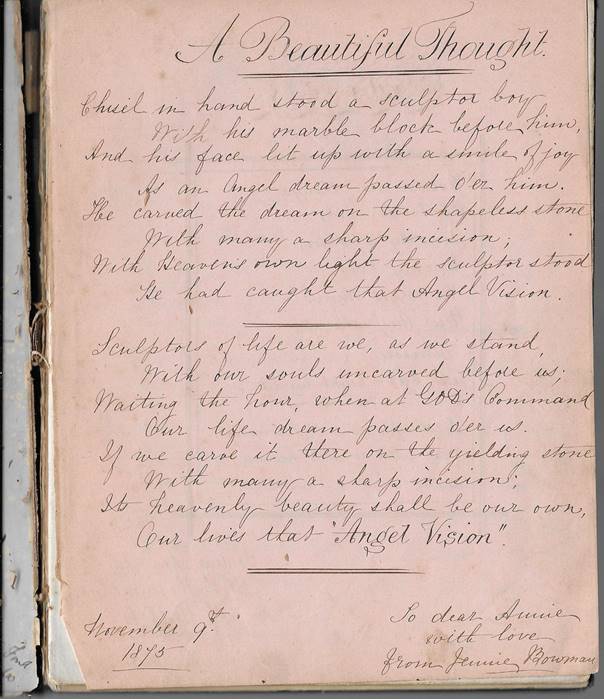 A Beautiful Thought.
Chisel in hand stood a sculptor boy
With his marble block before him,
And his face lit up with a smile of joy
As an Angel dream passed o'er him.
He carved the dream on the shapeless stone
With many a sharp incision;
With Heaven's own light the sculptor stood
He had caught that Angel Vision.
Sculptors of life are we, as we stand,
With our souls uncarved before us;
Waiting the hour, when at GOD's Command
Our life dream passes o'er us.
If we carve it there on the yielding stone
With many a sharp incision;
Its heavenly beauty shall be our own,
Our lives that "Angel Vision".
November 9th
1875
To dear Annie
with love
from Jennie Bowman